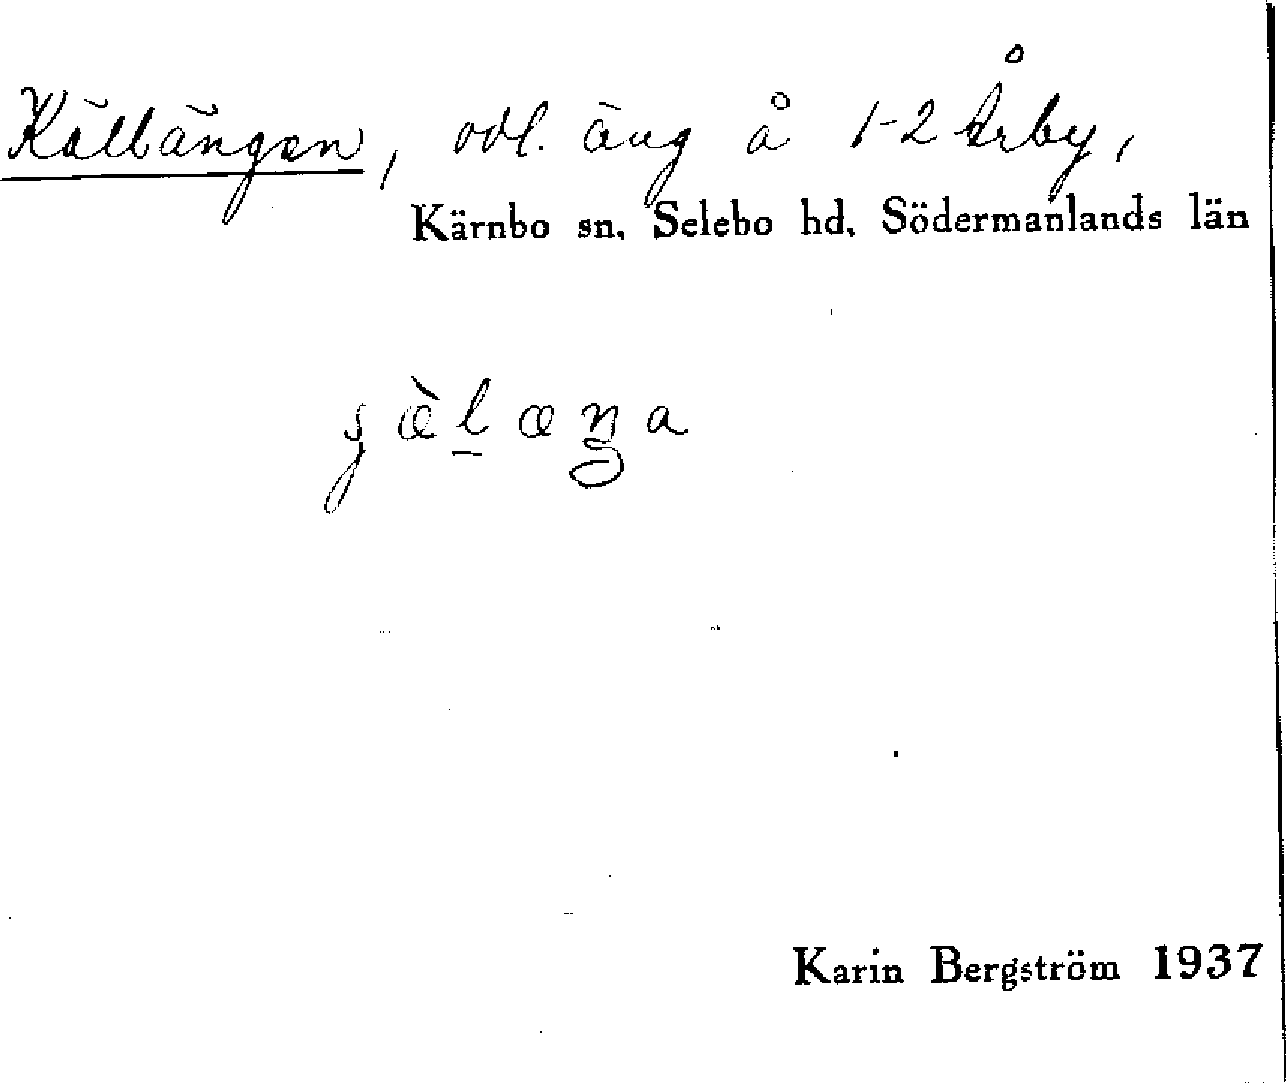 Källängen, odl. äng å 1-2 Årby,
Kärnbo sn, Selebo hd, Södermanlands län
Karin Bergström 1937